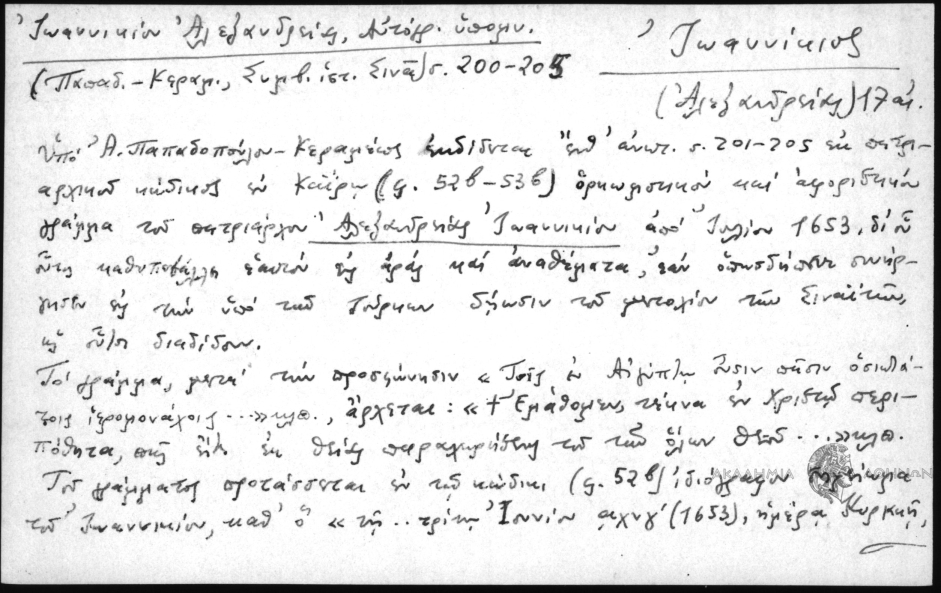 Ἰωαννικίου Ἀλεξανδρείας, Αὐτόγρ. ὑπομν.
Ἰωαννίκιος
(Παπαδ.-Κεραμ., Συμβ. ἱστ. Σινᾶ) σ. 200-205
(Ἀλεξανδρείας) 17 αἰ.
Ὑπὸ Ἀ. Παπαδοπούλου-Κεραμέως ἐκδίδεται ἔνθ' ἀνωτ. σ. 201-205 ἐκ πατρι-
αρχικοῦ κώδικος ἐν Καΐρῳ (φ. 52β-53β) ὁρκωμοτικὸν καὶ ἀφοριστικὸν
γράμμα τοῦ πατριάρχου Ἀλεξανδρείας Ἰωαννικίου ἀπὸ Ἰουλίου 1653, δι' οὗ
οὗτος καθυποβάλλει ἑαυτὸν εἰς ἀρὰς καὶ ἀναθέματα, ἐὰν ὁπωσδήποτε συνήρ-
γησεν εἰς τὴν ὑπὸ τῶν Τούρκων δῄωσιν τοῦ μετοχίου τῶν Σιναϊτῶν,
ὡς οὗτοι διαδίδουν.
Τὸ γράμμα, μετὰ τὴν προσφώνησιν «Τοῖς ἐν Αἰγύπτῳ οὖσιν πᾶσιν ὁσιωτά-
τοις ἱερομονάχοις ...» κτλ., ἄρχεται: «† Ἐμάθομεν, τέκνα ἐν Χριστῷ περι-
πόθητα, πῶς εἴτε ἐκ θείας παραχωρήσεως τοῦ τῶν ὅλων θεοῦ ...» κτλ.
Τοῦ γράμματος προτάσσεται ἐν τῷ κώδικι (φ. 52β) ἰδιόγραφον σημείωμα
τοῦ Ἰωαννικίου, καθ' ὃ «τῇ .. τρίτῃ Ἰουνίου αχνγʹ (1653), ἡμέρᾳ Κυριακῇ,
ΑΚΑΔΗΜΙΑ ΑΘΗΝΩΝ